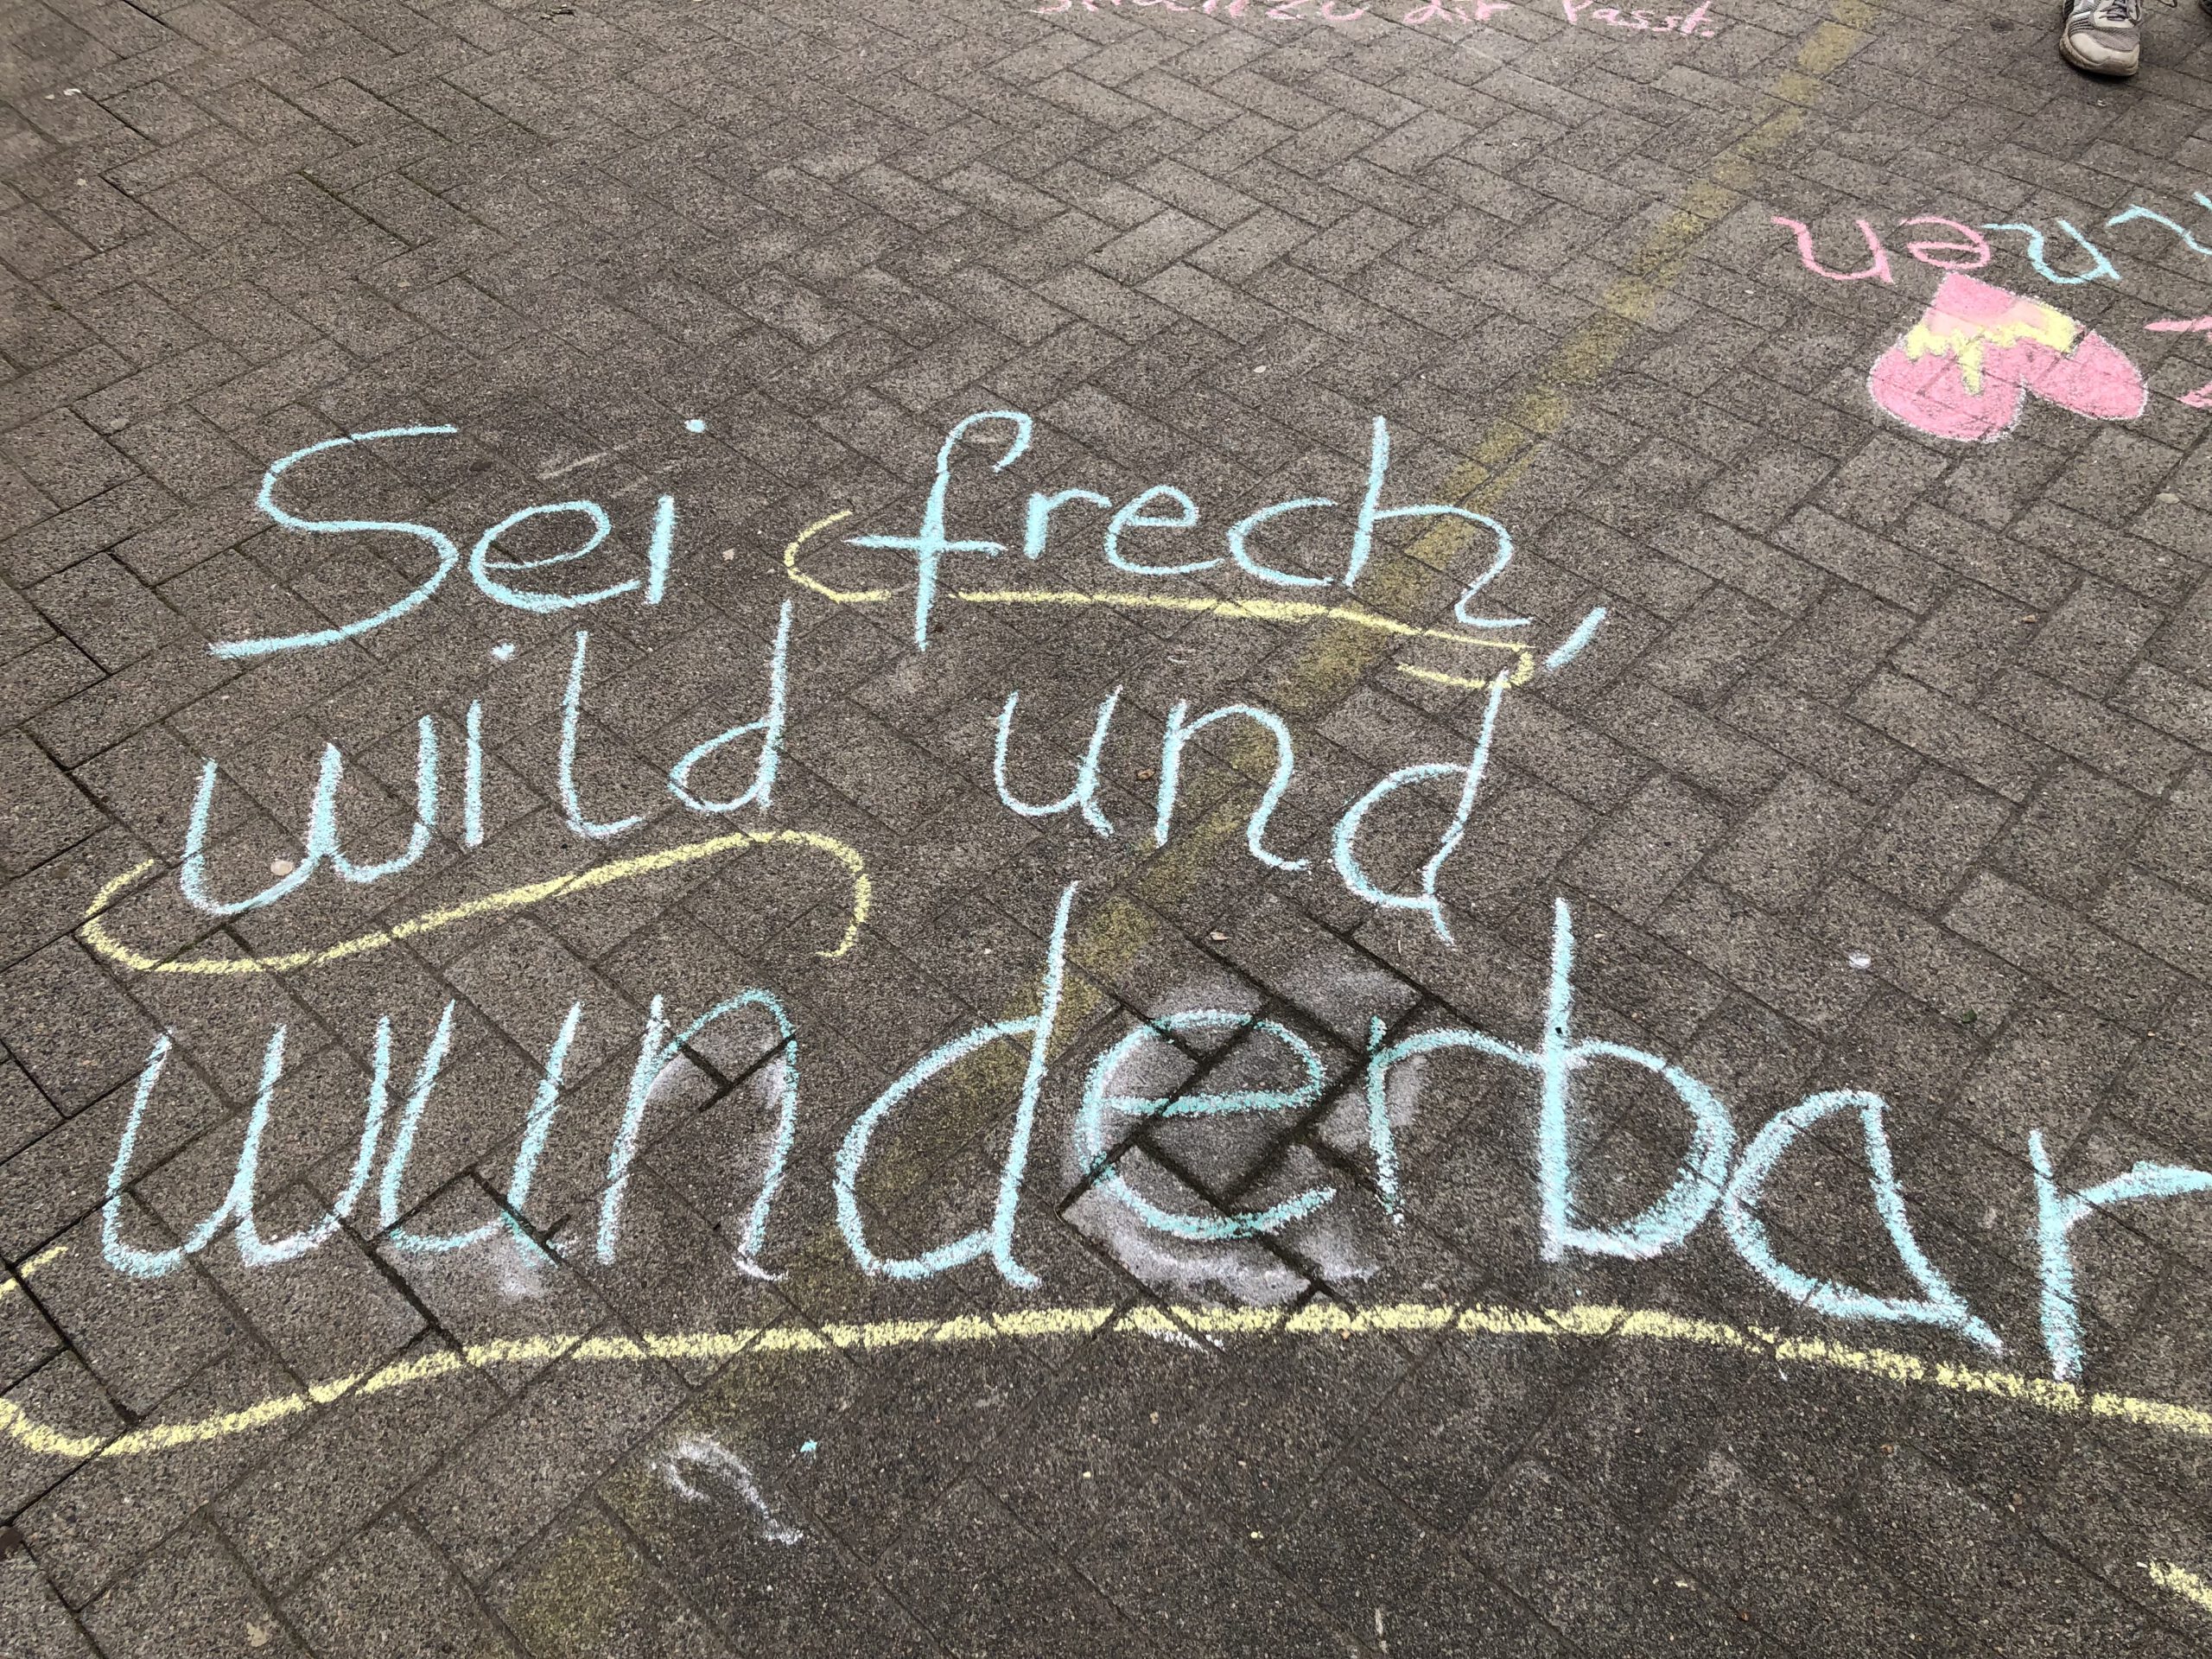 zu dir passt.
Sei frech,
wild und
wunderbar